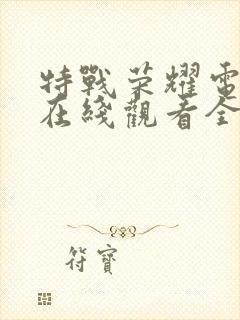 特戰荣耀電
在綫觀看全
符寶